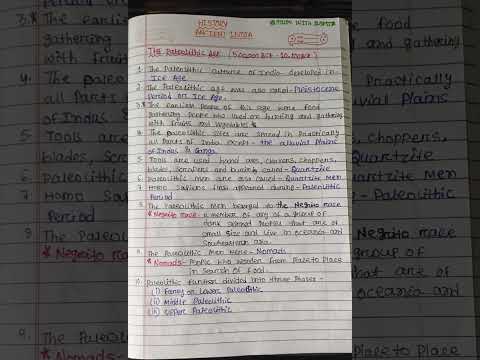 HISTORY
ANCIENT INDIA
The Paleolithic Age (500,000 BCE - 10,000 BCE)
1. The Paleolithic culture of India developed in Ice Age.
2. The Paleolithic age was also called - Pleistocene Period or Ice Age.
3. The earliest people of this age were food
gathering people who lived on hunting and gathering
with fruits and vegetables
4. The paleolithic sites are spread in Practically
all Parts of India except - the alluvial Plains
of Indus & Ganga
5. Tools are used hand axes, cleavers, choppers,
blades, scrapers and burin called - Quartzite
6. Paleolithic men are also called - Quartzite Men
7. Homo Sapiens first appeared during - Paleolithic
Period
8. The Paleolithic Men belonged to the Negrito race
* Negrito race - a member of any of a group of
dark skinned that are of
small size and live in oceania and
Southeastern asia
9. The Paleolithic Men were - Nomads
* Nomads - People who wander from Place to Place
in Search of food
10. Paleolithic divided into three Phases -
(i) Early or Lower Paleolithic
(ii) Middle Paleolithic
(iii) Upper Paleolithic